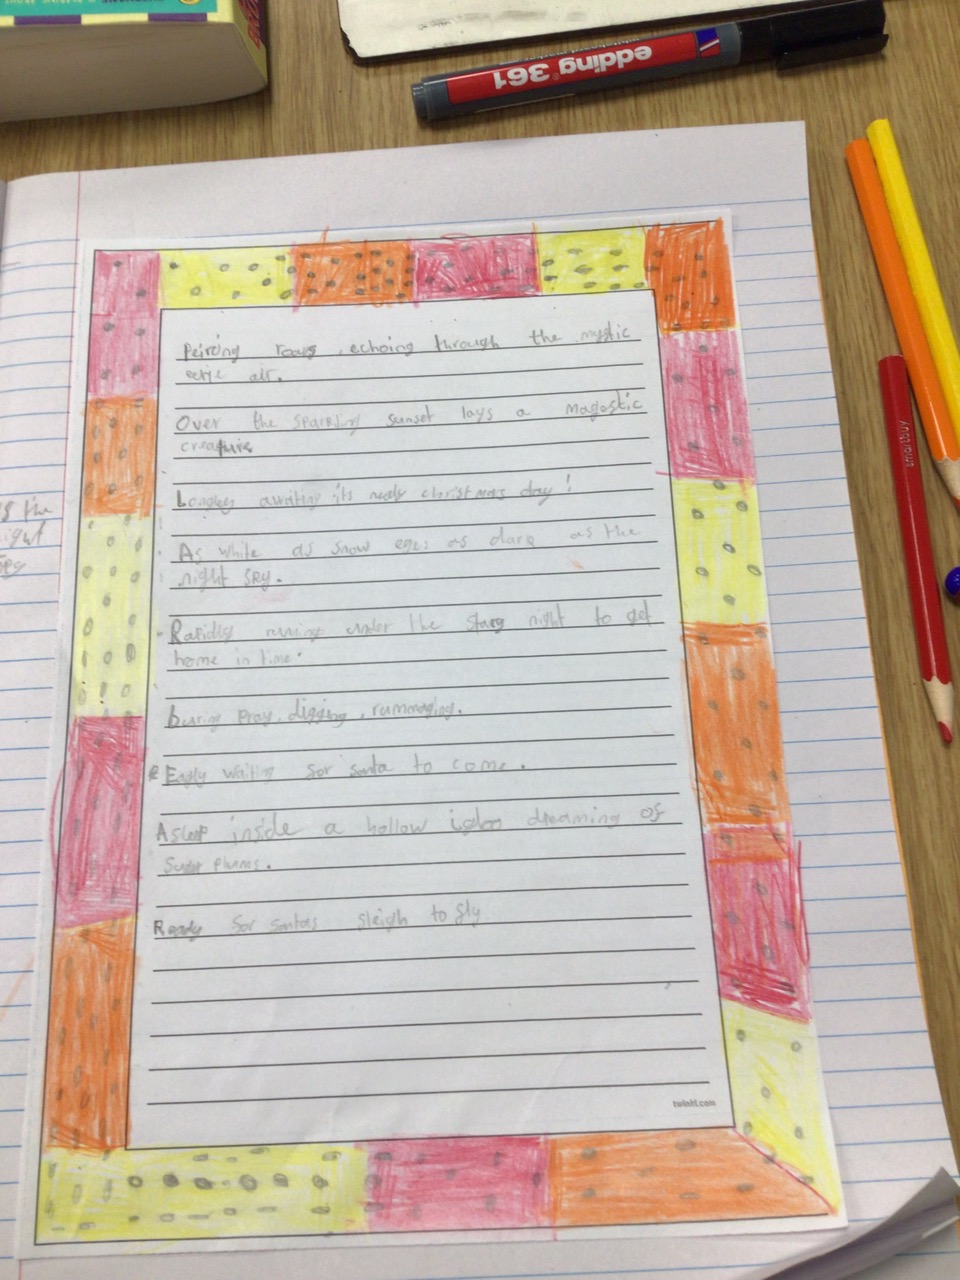 edding 361
whiteboard marker
smartbuy
s the
ight
Peircing roars, echoing through the mystic
eerie air.
Over the sparkling sunset lays a magestic
creature
Longley awaiting its nedy christmas day!
As white as snow eges as dark as the
night sky.
Rapidly running under the stary night to get
home in time.
buring pray, digging, rummaging.
Eagly waiting for santa to come.
Asleep inside a hollow dreaming of
Sugar Plums.
Ready for santas sleigh to fly
twinkl.com